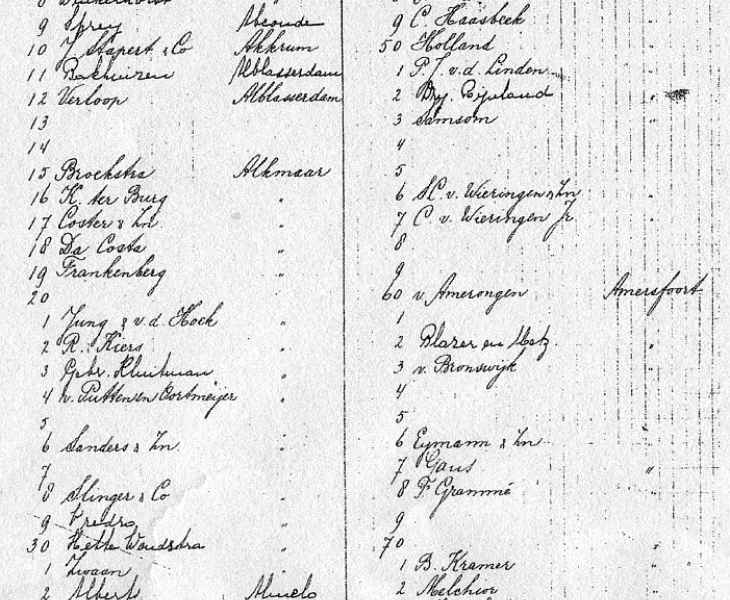 9 Spruy Abcoude
10 J. Stapert & Co Akkrum
11 Bakhuizen Alblasserdam
12 Verloop Alblasserdam
13
14
15 Broekstra Alkmaar
16 K. ter Burg "
17 Coster & Zn "
18 Da Costa "
19 Frankenberg "
20
1 Jung & v.d. Hoek "
2 R. Kiers "
3 Gebr. Kluitman "
4 v. Putten en Oortmeijer "
5
6 Sanders & Zn. "
7
8 Slinger & Co "
9 Vredro "
30 Hette Woudstra "
1 Zwaan "
2 Albert Almelo
9 C. Haasbeek "
50 Holland "
1 P.J. v.d. Linden "
2 "
3 Samsom "
4
5
6 v. Wieringen & Zn "
7 C. v. Wieringen Jr. "
8
9
60 v. Amerongen Amersfoort
1
2 Blazer en Metz "
3 v. Bronswijk "
4
5
6 Eymann & Zn "
7 Gaus "
8 F. Grammé "
9
70
1 B. Kramer "
2 Melchior "